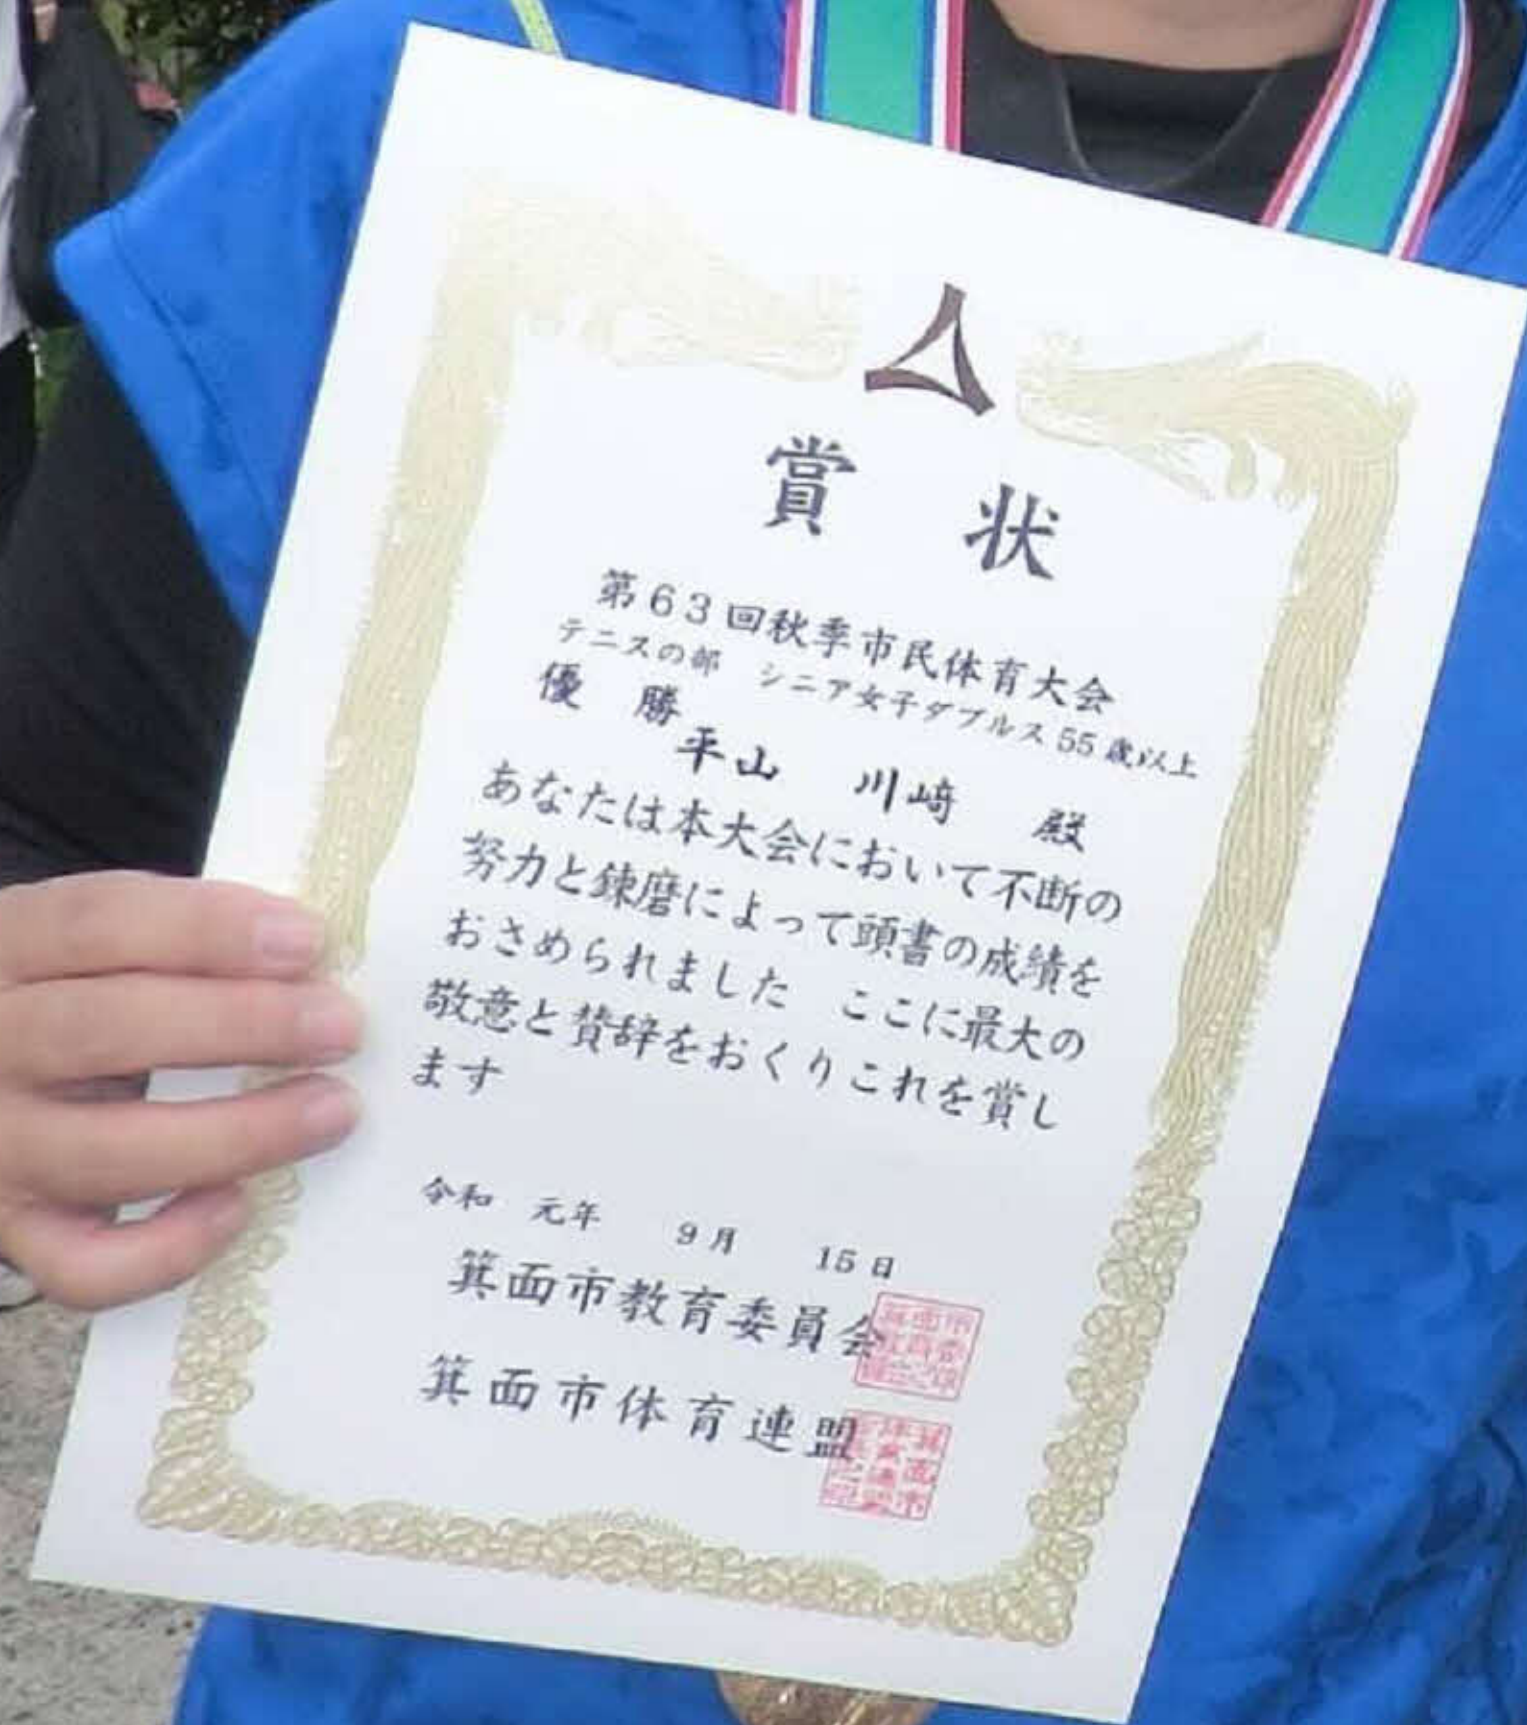 賞 状
第63回秋季市民体育大会
テニスの部 シニア女子ダブルス55歳以上
優 勝
平山 川﨑 殿
あなたは本大会において不断の
努力と錬磨によって頭書の成績を
おさめられました ここに最大の
敬意と賛辞をおくりこれを賞し
ます
令和 元年 9月 15日
箕面市教育委員会
箕面市体育連盟